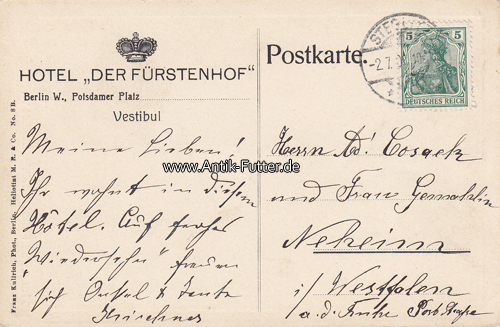 HOTEL „DER FÜRSTENHOF"
Berlin W., Potsdamer Platz
Vestibul
Meine Lieben!
Ihr wohnt in diesem
Hotel. Auf frohes
"Wiedersehn" freuen
sich Onkel & Tante
Kirschner
Franz Kullrich, Phot., Berlin. Heliotint M. R. & Co. No. 8B.
Postkarte.
STEGLITZ
-2.7.
5 5
DEUTSCHES REICH
Herrn Ad. Cosack
und Frau Gemahlin
Neheim
i/ Westfalen
a. d. Ruhr
www.Antik-Futter.de